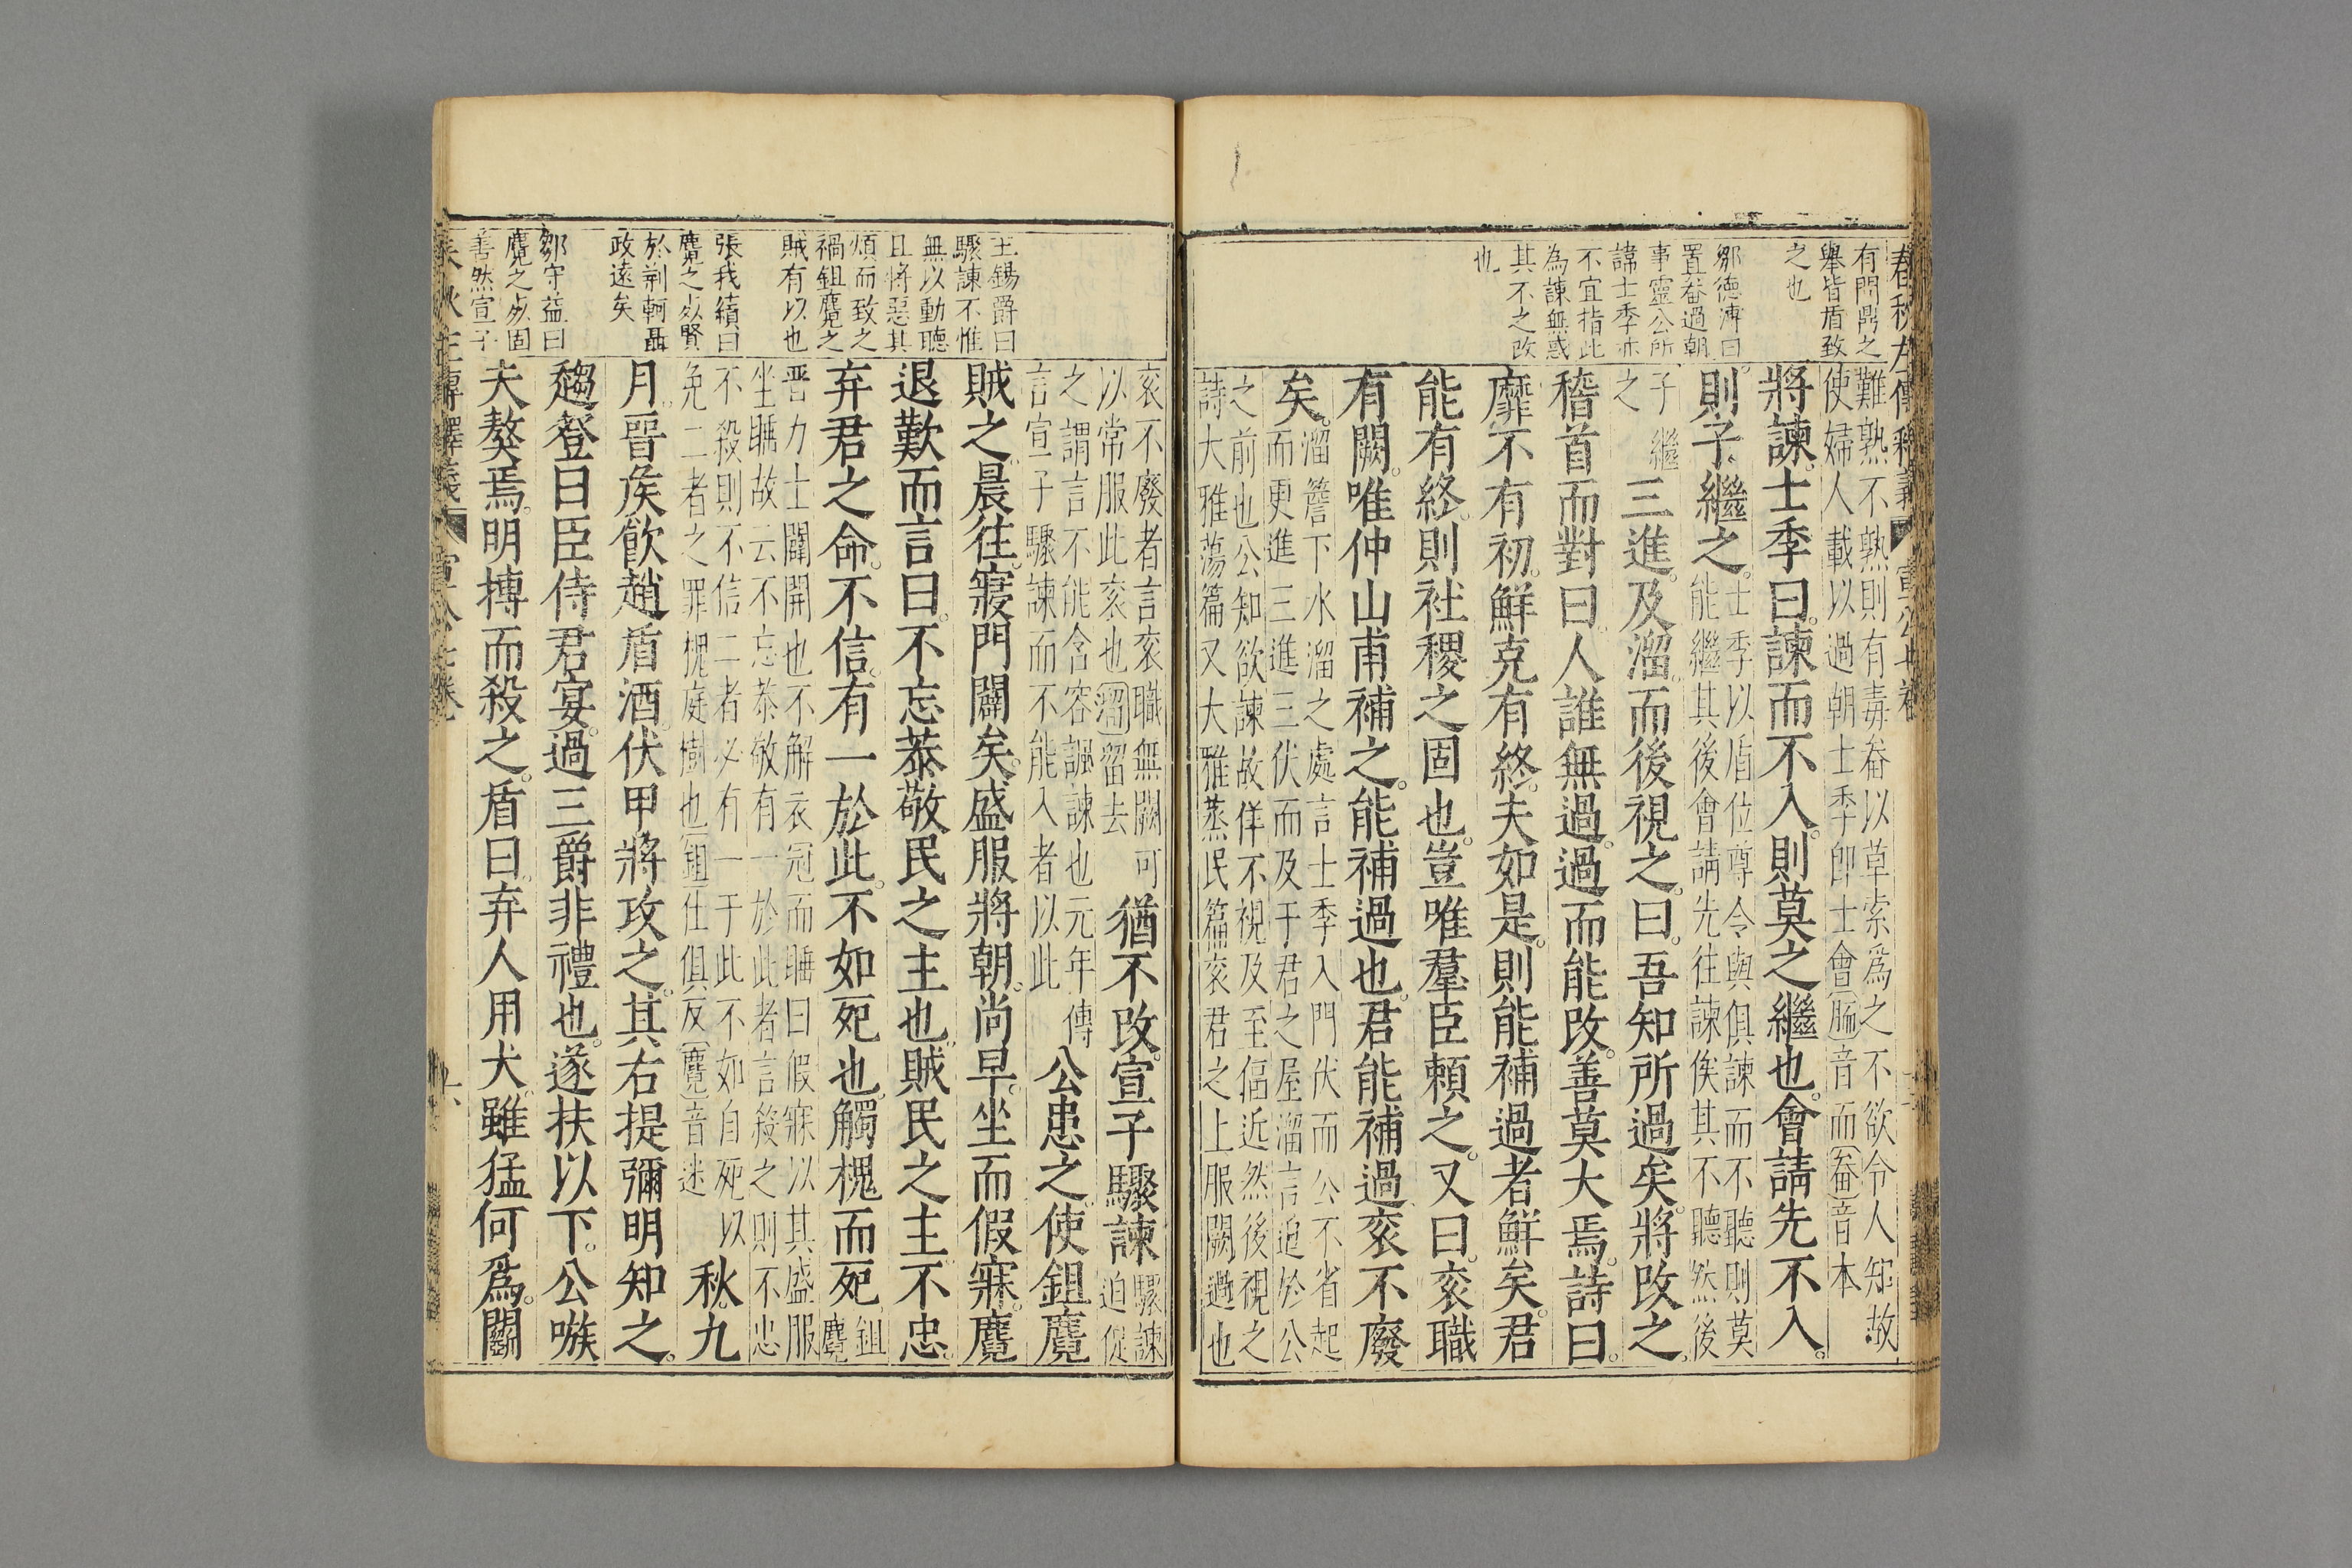 春秋左傳釋義 宣公七卷
有問鼎之
舉皆盾致
之也
鄒德溥曰
置畚過朝
事靈公所
諱士季亦
不宜指此
為諫無惑
其不之改
也
難熟不熟則有毒畚以草索爲之不欲令人知故
使婦人載以過朝士季即士會胹音而畚音本
將諫士季曰諫而不入則莫之繼也會請先不入
則子繼之
士季以盾位尊令與俱諫而不聽則莫
能繼其後會請先往諫俟其不聽然後
子繼
之
三進及溜而後視之曰吾知所過矣將改之
稽首而對曰人誰無過過而能改善莫大焉詩曰
靡不有初鮮克有終夫如是則能補過者鮮矣君
能有終則社稷之固也豈唯羣臣賴之又曰袞職
有闕唯仲山甫補之能補過也君能補過袞不廢
矣
溜簷下水溜之處言士季入門伏而公不省起
而更進三進三伏而及于君之屋溜言迫於公
之前也公知欲諫故佯不視及至偪近然後視之
詩大雅蕩篇又大雅蒸民篇袞君之上服闕過也
王錫爵曰
驟諫不惟
無以動聽
且將惡其
煩而致之
禍鉏麑之
賊有以也
張我績曰
麑之死賢
於荆軻聶
政遠矣
鄒守益曰
麑之死固
善然宣子
袞不廢者言袞職無闕可
以常服此袞也溜留去
猶不改宣子驟諫
驟諫
迫促
之謂言不能含容諷諫也元年傳
言宣子驟諫而不能入者以此
公患之使鉏麑
賊之晨往寢門闢矣盛服將朝尚早坐而假寐麑
退歎而言曰不忘恭敬民之主也賊民之主不忠
弃君之命不信有一於此不如死也觸槐而死
鉏
麑
晉力士闢開也不解衣冠而睡曰假寐以其盛服
坐睡故云不忘恭敬有一於此者言殺之則不忠
不殺則不信二者必有一于此不如自死以
免二者之罪槐庭樹也鉏仕俱反麑音迷
秋九
月晉侯飲趙盾酒伏甲將攻之其右提彌明知之
趨登曰臣侍君宴過三爵非禮也遂扶以下公嗾
夫獒焉明搏而殺之盾曰弃人用犬雖猛何爲鬬